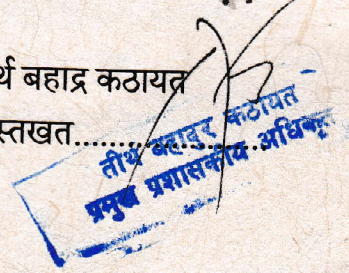 र्थ बहाद्र कठायत
स्तखत........................
तीर्थ बहादुर कठायत
प्रमुख प्रशासकीय अधिकृत